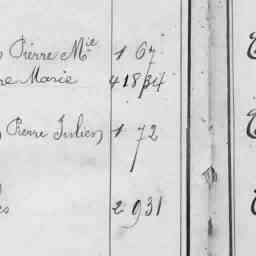 Pierre Mie 1 67
re Marie 4 1834
Pierre Julien 1 72
es 2 931